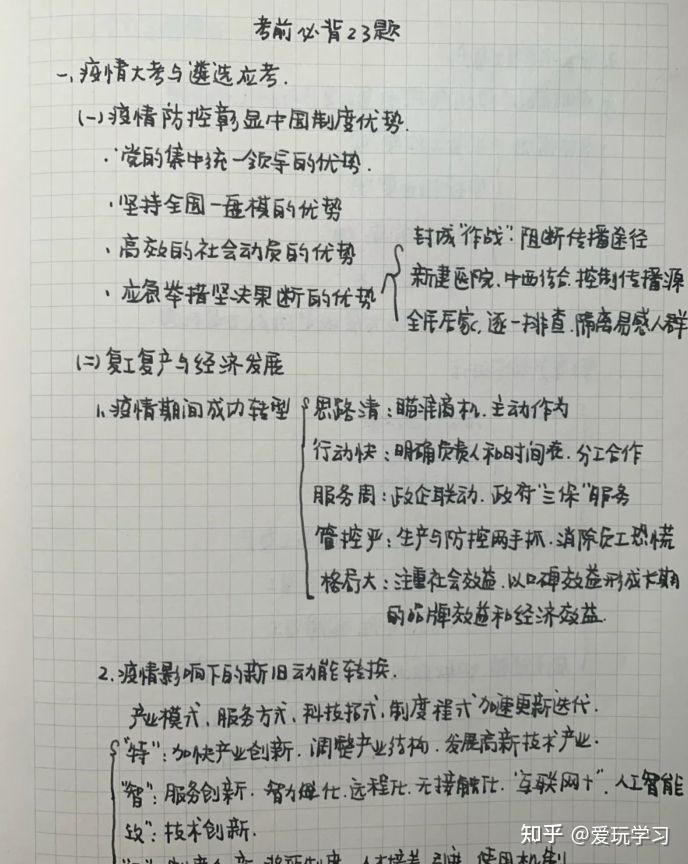 考前必背23题
一、疫情大考与遴选应考.
(一)疫情防控彰显中国制度优势.
·党的集中统一领导的优势.
·坚持全国一盘棋的优势
·高效的社会动员的优势
·应急举措坚决果断的优势
封城"作战":阻断传播途径
新建医院.中西结合.控制传播源
全民居家,逐一排查.隔离易感人群
(二)复工复产与经济发展
1.疫情期间成功转型
思路清:瞄准商机.主动作为
行动快:明确负责人和时间表.分工合作
服务周:政企联动.政府"三保"服务
管控严:生产与防控两手抓.消除员工恐慌
格局大:注重社会效益.以口碑效益形成长期
的品牌效益和经济效益.
2.疫情影响下的新旧动能转换.
产业模式、服务方式、科技招式、制度程式加速更新迭代.
"特":加快产业创新.调整产业结构.发展高新技术产业.
"智":服务创新.智力化.远程化.无接触化."互联网+".人工智能
:技术创新.
知乎 @爱玩学习